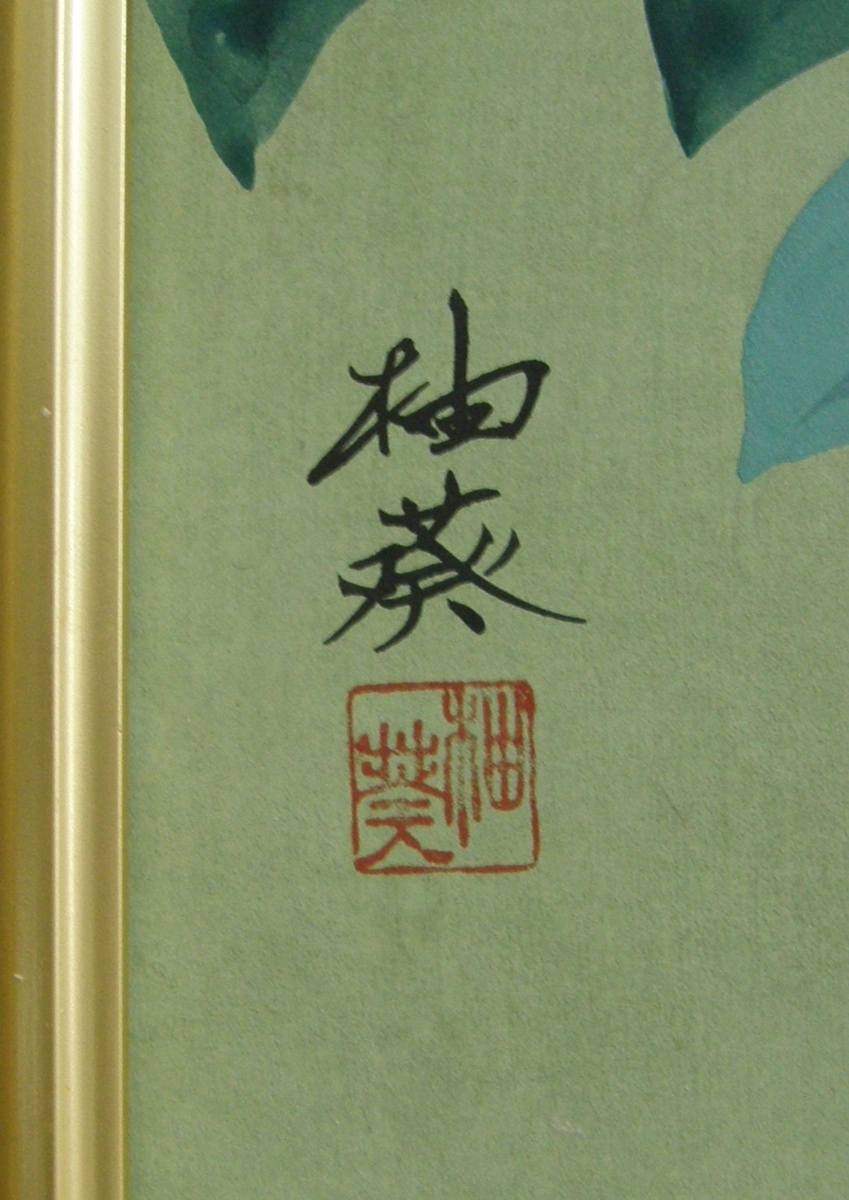 柚葵
柚葵